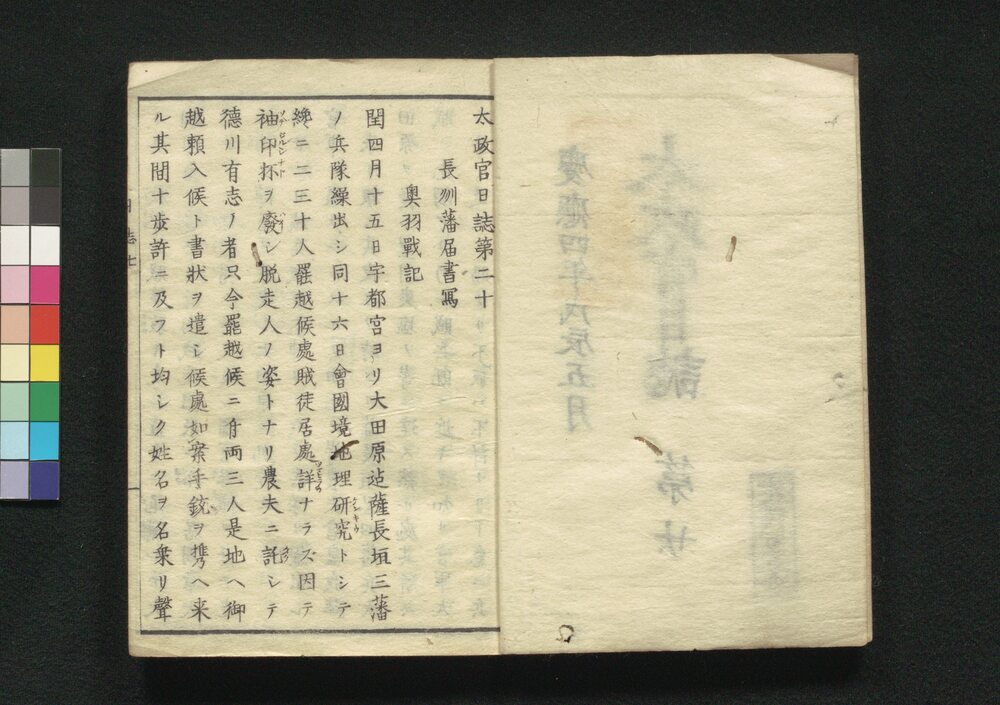 太政官日誌第二十
長州藩届書寫
奥羽戰記
閏四月十五日宇都宮ヨリ大田原迠薩長垣三藩
ノ兵隊繰出シ同十六日會國境地理研究トシテ
纔ニ二三十人罷越候處賊徒居處詳ナラズ因テ
袖印抔ヲ廢シ脱走人ノ姿トナリ農夫ニ託シテ
德川有志ノ者只今罷越候ニ付両三人是地ヘ御
越頼入候ト書狀ヲ遣シ候處如案手銃ヲ携ヘ来
ル其間十歩許ニ及フト均シク姓名ヲ名乗リ聲
日誌
慶應四年戊辰五月
太政官日誌
第廿